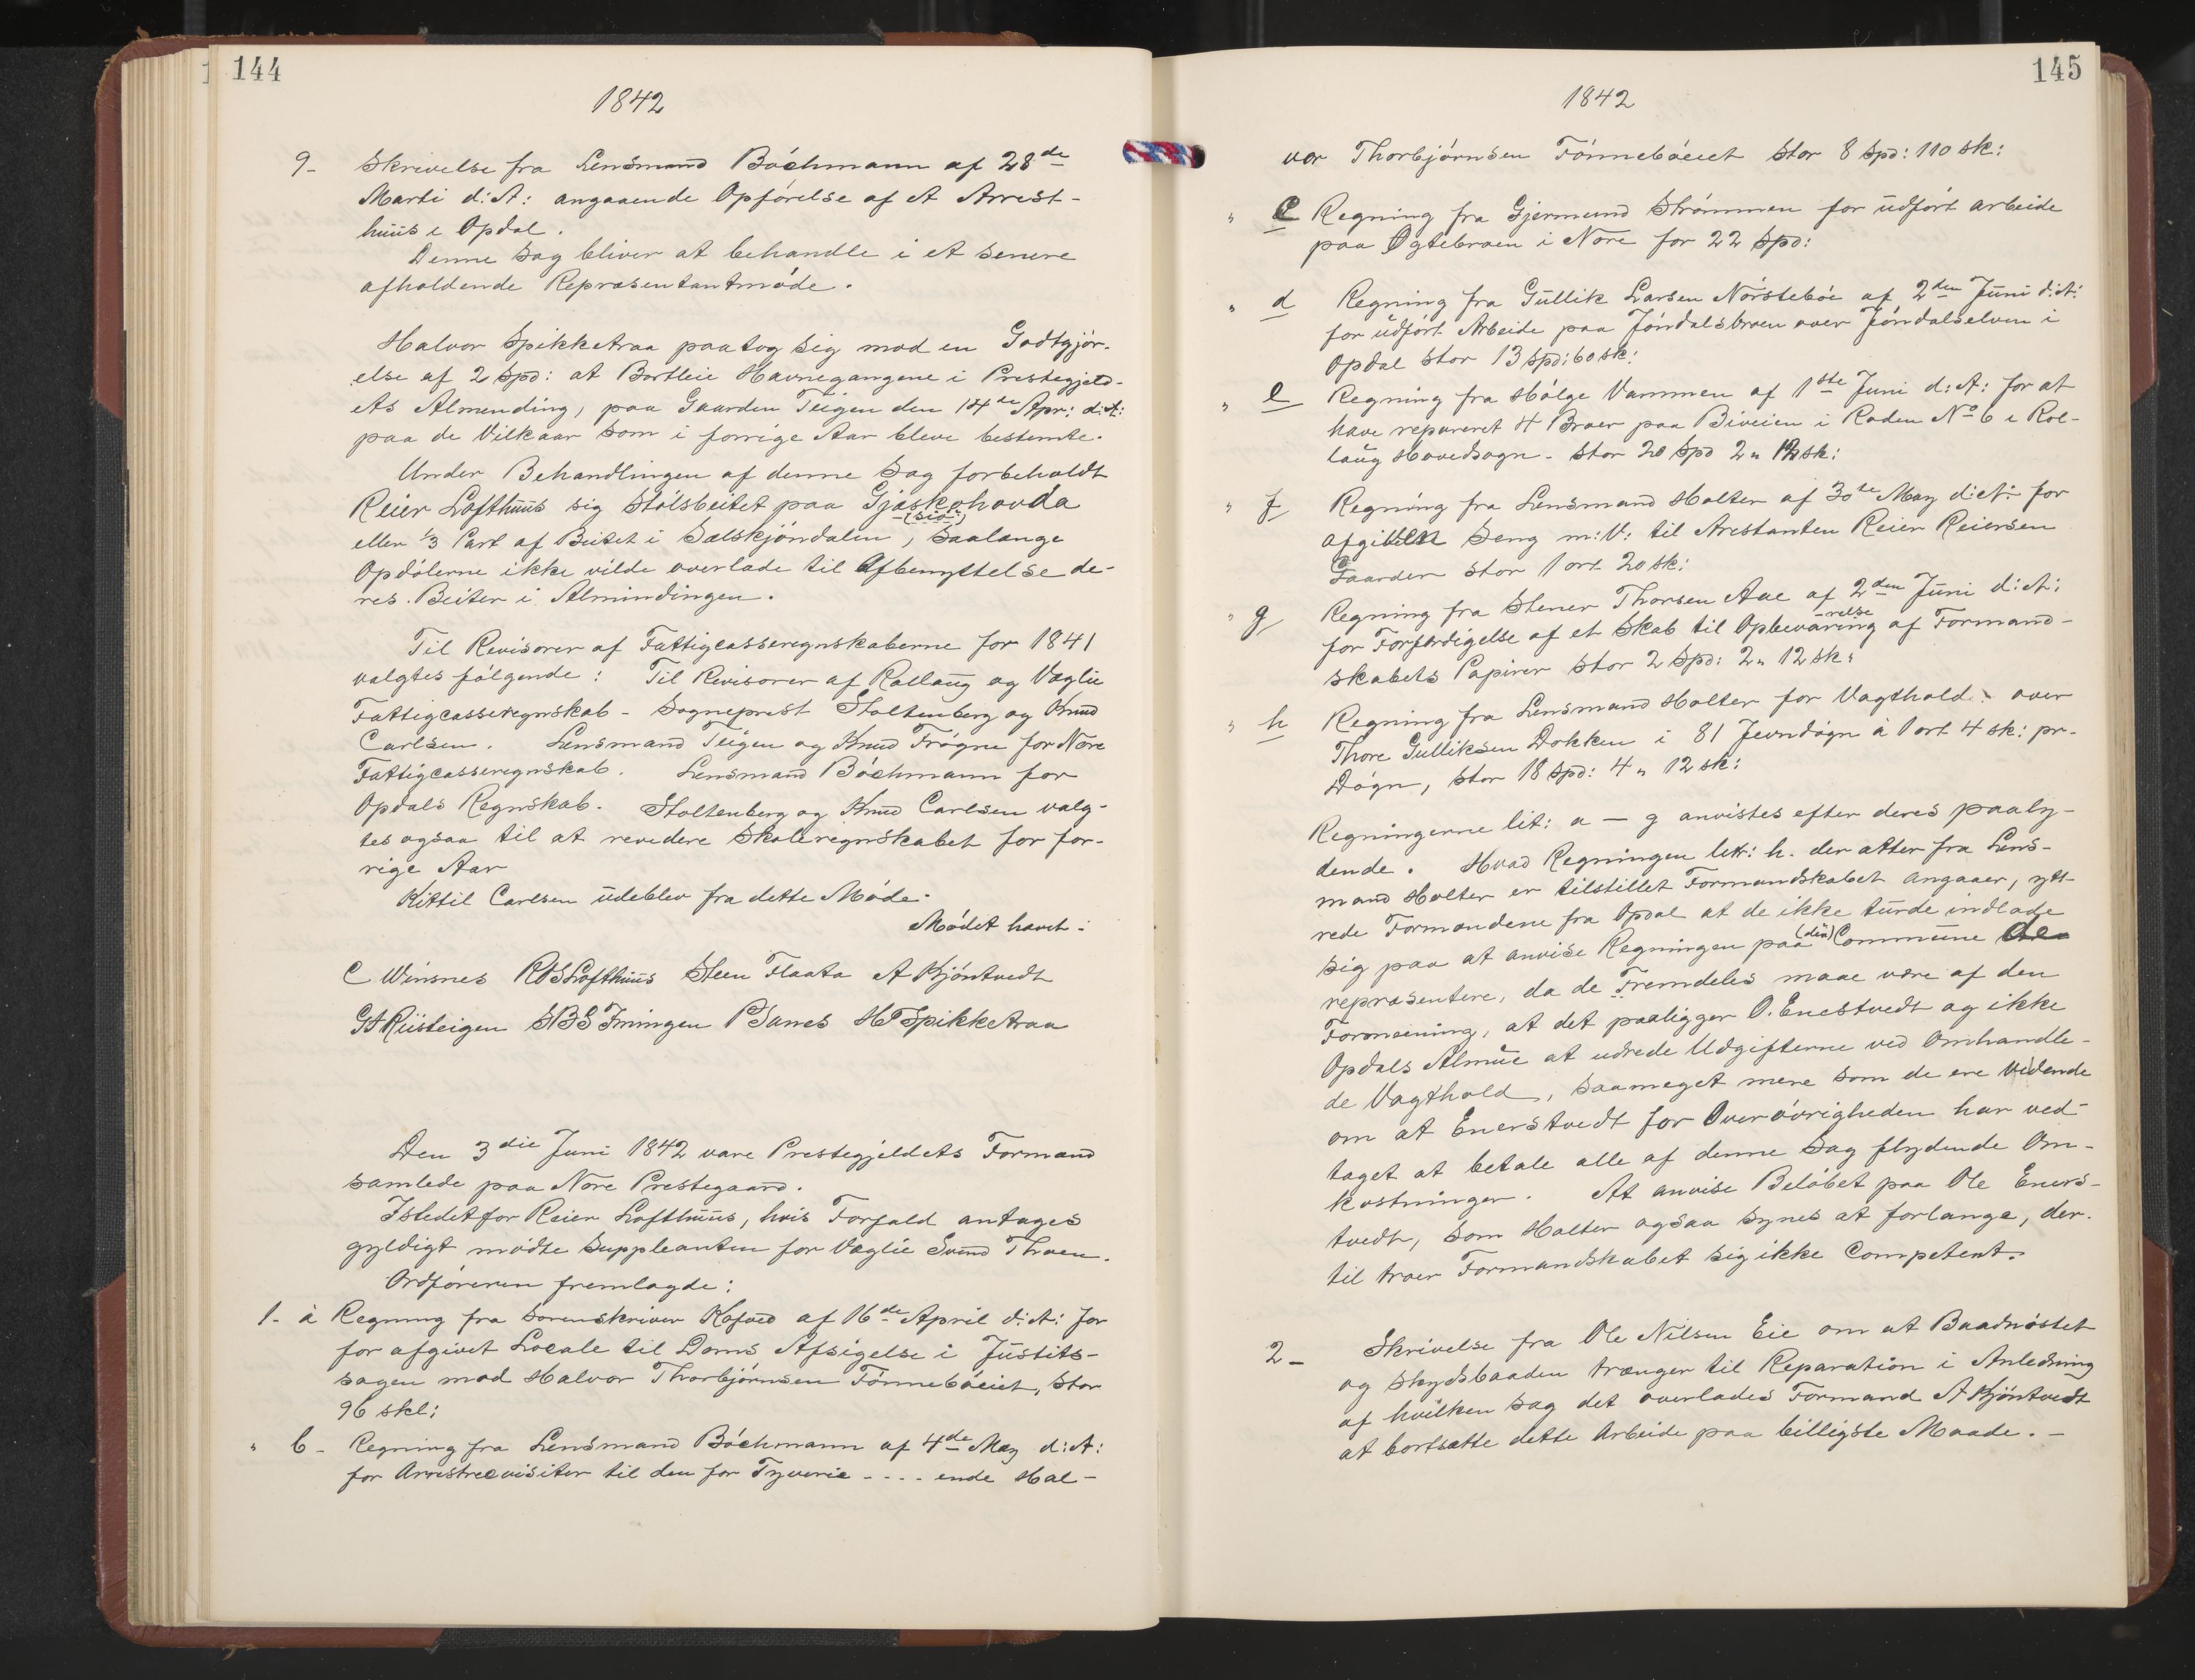 144
1842
9- Skrivelse fra Lensmand Bóchmann af 28de
Marti d:A: angaaende Opførelse af et Arrest-
huus i Opdal.
Denne Sag bliver at behandle i et senere
afholdende Repræsentantmøde.
Halvor Spikketraa paatog sig mod en Godtgjør-
else af 2 Spd: at Bortleie Havnegangene i Prestegjeld-
ets Almending, paa Gaarden Teigen den 14de Apr: d:A:
paa de Vilkaar som i forrige Aar bleve bestemte.
Under Behandlingen af denne Sag forbeholdt
Reier Lofthuus sig Stølsbeitet paa Gjaskehovda
(sic:)
eller 1/3 Part af Beitet i Sælskjøndalen, saalænge
Opdølerne ikke vilde overlade til Afbenyttelse de-
res Beiter i Almindingen.
Til Revisorer af Fattigcasseregnskaberne for 1841
valgtes følgende: Til Revisorer af Rollaug og Væglie
Fattigcasseregnskab - Sogneprest Stoltenberg og Knud
Carlsen. Lensmand Teigen og Knud Frøgne for Nore
Fattigcasseregnskab. Lensmand Bóchmann for
Opdals Regnskab. Stoltenberg og Knud Carlsen valg-
tes ogsaa til at revidere Skoleregnskabet for for-
rige Aar
Kittil Carlsen udeblev fra dette Møde.
Mødet hævet:
C Winsnes RBS Lofthuus Steen Flaata A Kjøntvedt
GA Ruusteigen SBS Imingen P Sanes HT Spikketraa
Den 3die Juni 1842 vare Prestegjeldets Formænd
samlede paa Nore Prestegaard.
Istedetfor Reier Lofthuus, hvis Forfald antages
gyldigt mødte Suppleanten for Væglie Svend Thoen.
Ordføreren fremlagde:
1- a Regning fra Sorenskriver Kofoed af 16de April d:A: for
for afgivet Locale til Doms Afsigelse i Justits-
sagen mod Halvor Thorbjørnsen Fønnebøeiet, stor
96 skl:
" b- Regning fra Lensmand Bóchmann af 4de May d:A:
for Arrestrecvisiter til den for Tyverie - - - - ende Hal-
145
1842
vor Thorbjørnsen Fønnebøeiet stor 8 Spd: 110 sk:
" c Regning fra Gjermund Strømmen for udført arbeide
paa Ygtebroen i Nore for 22 Spd:
" d Regning fra Gullik Larsen Nørstebøe af 2den Juni d:A:
for udført Arbeide paa Jøndalsbroen over Jøndalselven i
Opdal stor 13 Spd: 60 sk:
" e Regning fra Hølge Vammen af 1ste Juni d:A: for at
have repareret 4 Broer paa Biveien i Roden No 6 i Rol-
laug Hovedsogn - stor 20 Spd 2 " 12 sk:
" f Regning fra Lensmand Holter af 30te May d:A: for
afgiven Seng m:V: til Arestanten Reier Reiersen
Gaarden stor 1 ort 20 sk:
" g Regning fra Stener Thorsen Aae af 2den Juni d:A:
-relse
for Forfærdigelse af et Skab til Opbevaring af Formand-
skabets Papirer stor 2 Spd: 2 " 12 sk:
" h Regning fra Lensmand Holter for Vagthold: over
Thore Gulliksen Dokken i 81 Jevndøgn à 1 ort 4 sk: pr-
Døgn, stor 18 Spd: 4 " 12 sk:
Regningerne lit: a — g anvistes efter deres paaly-
dende. Hvad Regningen litr: h. der atter fra Lens-
mand Holter er tilstillet Formandskabet angaaer, ytt-
rede Formændene fra Opdal at de ikke turde indlade
sig paa at anvise Regningen paa (den) Commune de
repræsentere, da de Fremdeles maae være af den
Formening, at det paaligger O. Enestvedt og ikke
Opdals Almue at udrede Udgifterne ved Omhandle-
de Vagthold, saameget mere som de ere vidende
om at Enerstvedt for Overøvrigheden har ved-
taget at betale alle af denne Sag flydende Om-
kostninger. At anvise Beløbet paa Ole Eners-
tvedt, som Holter ogsaa synes at forlange, der-
til troer Formandskabet sig ikke Competent.
2- Skrivelse fra Ole Nilsen Eie om at Baadnøstet
og Skydsbaaden trænger til Reparation i Anledning
af hvilken Sag det overlades Formand A Kjøntvedt
at bortsætte dette Arbeide paa billigste Maade. -